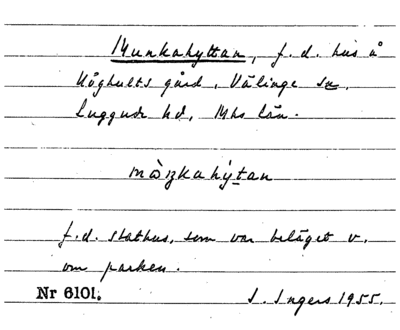 Munkahyttan, f.d. hus å
Höghults gård, Välinge sn,
Luggude hd, Mhs län.
màŋkahýtan
f.d. stathus, som var beläget v.
om parken.
Nr 6101. I. Ingers 1955.